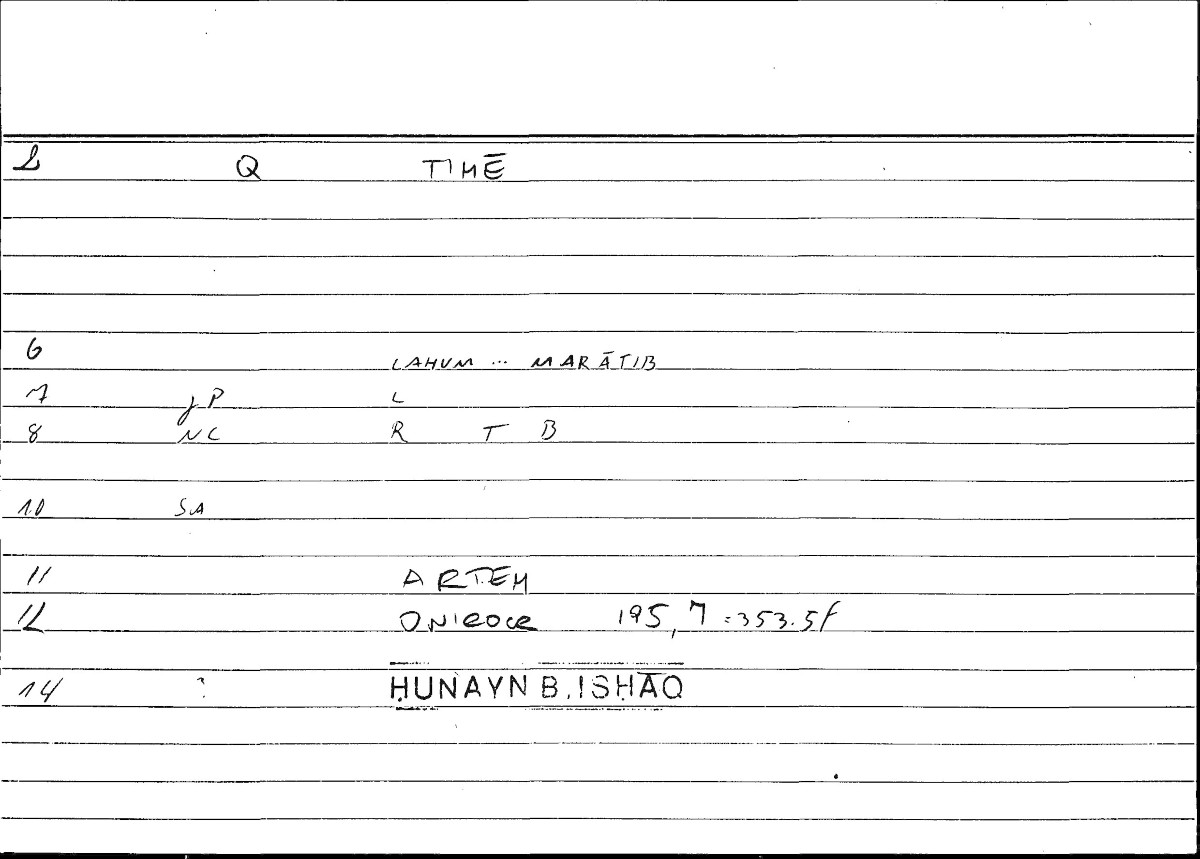 2 Q TIMĒ
6 LAHUM ... MARĀTIB
7 JP L
8 NC R T B
10 SA
11 ARTEM
12 ONIROCR 195,7 = 353.5f
14 ḤUNAYN B. ISḤĀQ